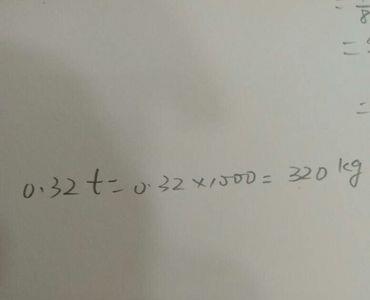 8
=
=
0.32 t = 0.32 × 1000 = 320 kg